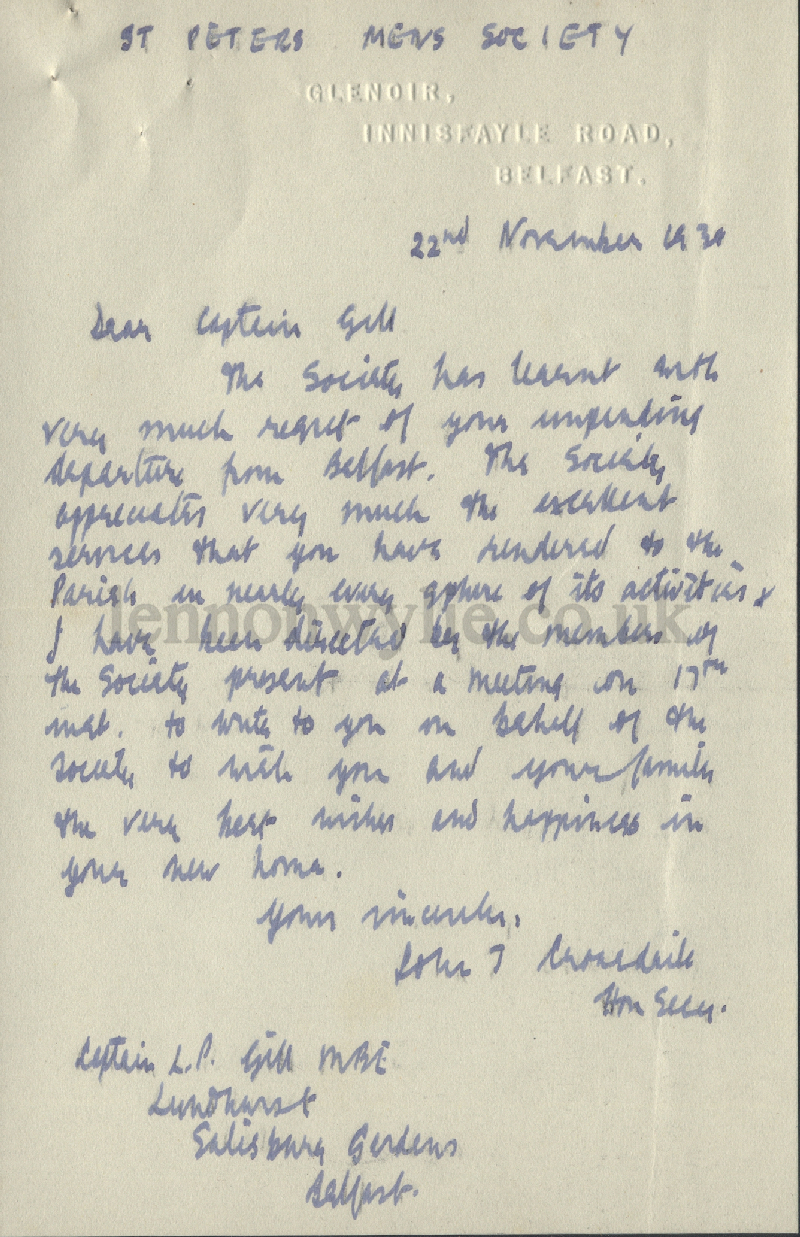 ST PETERS MENS SOCIETY
GLENOIR,
INNISFAYLE ROAD,
BELFAST.
22nd November 1930
Dear Captain Gill
The Society has learnt with
very much regret of your impending
departure from Belfast. The Society
appreciates very much the excellent
services that you have rendered to the
Parish in nearly every sphere of its activities &
I have been directed by the members of
the Society present at a meeting on 17th
inst. to write to you on behalf of the
Society to wish you and your family
the very best wishes and happiness in
your new home.
Yours sincerely,
John T
Hon Secy.
Captain L.P. Gill MBE
Lyndhurst
Salisbury Gardens
Belfast.
lennonwylie.co.uk